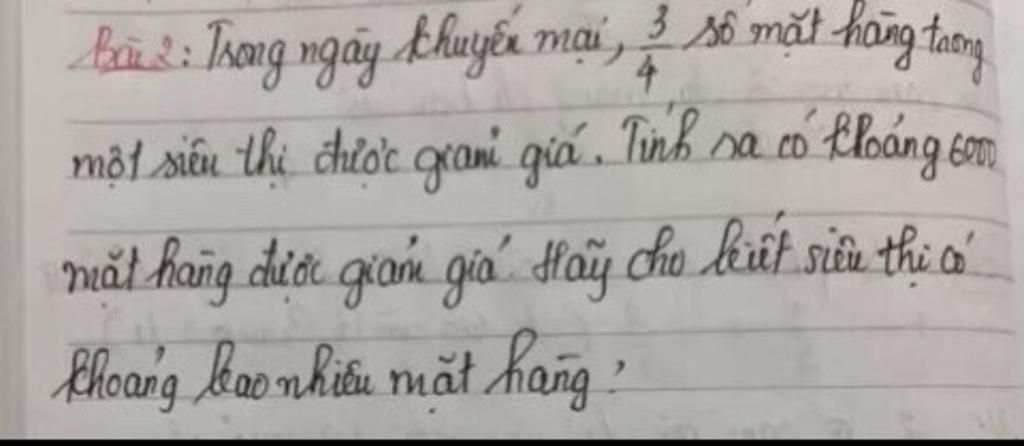 Bài 2: Trong ngày khuyến mại, 3/4 số mặt hàng trong
một siêu thị được giảm giá. Tính ra có khoảng 6000
mặt hàng được giảm giá Hãy cho biết siêu thị có
khoảng bao nhiêu mặt hàng?